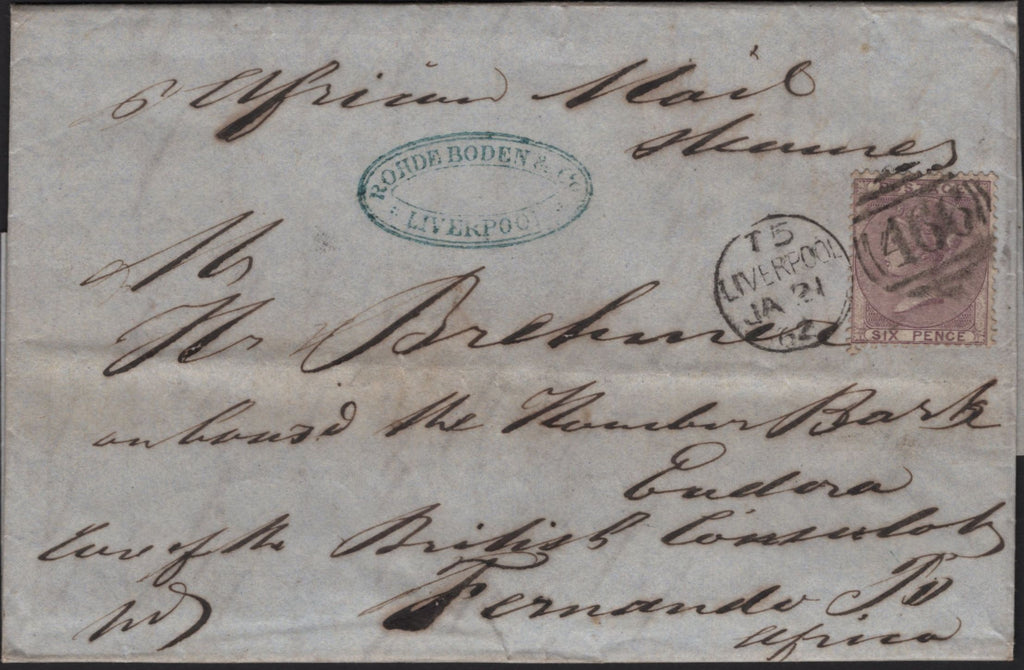 p African Mail
Steamer
ROHDE BODEN & Co
LIVERPOOL
POSTAGE
466
SIX PENCE
T5
LIVERPOOL
JA 21
62
Mr
Hr Brehmer
on board the Hambro Bark
Eudora
Care of the British Consulate
Fernando Po
Africa